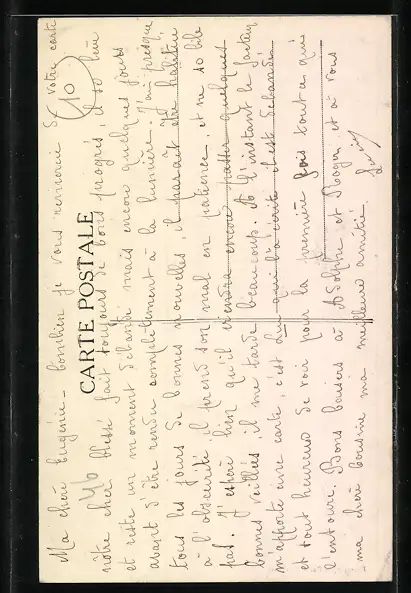 Ma chère Eugénie - Combien je vous remercie de votre carte
10
46
CARTE POSTALE
nôtre cher blessé fait toujours de bons progrès, il se lève
et reste un moment debout mais encore quelques jours
avant d'être rendu complètement à la lumière. J'ai presque
tous les jours de bonnes nouvelles, il paraît être habitué
à l'obscurité il prend son mal en patience et ne se bile
pas. J'espère bien qu'il viendra encore passer quelques
bonnes veillées, il me tarde beaucoup. A l'instant le facteur
m'apporte une carte, c'est lui qui l'a écrite il est
et tout heureux de voir pour la première fois tout ce qui
l'entoure. Bons baisers à Adolphe et Roger et à vous
ma chère cousine ma meilleure amitié.